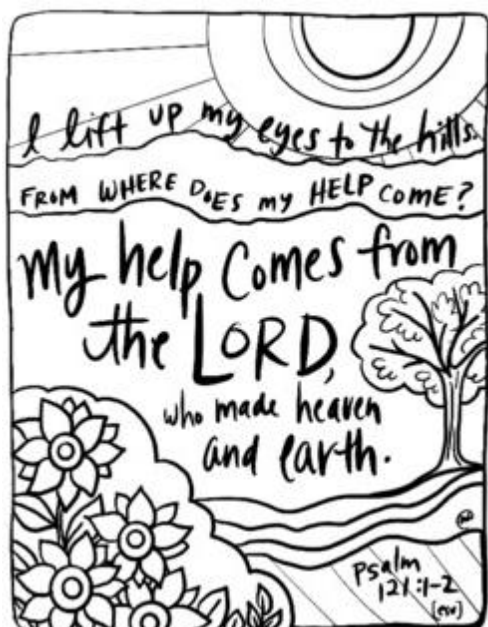 I lift up my eyes to the hills.
FROM WHERE DOES my HELP COME?
my help comes from
the LORD,
who made heaven
and earth.
Psalm
121:1-2
(esv)